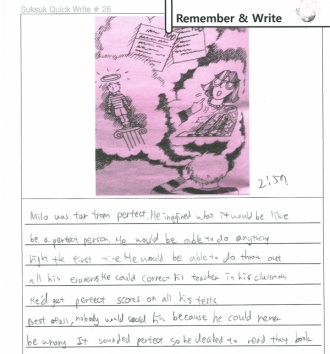 Suksuk Quick Write # 26
Remember & Write
2'59
Milo was far from perfect. He imagined who it would be like
be a perfect person. He would be able to do anything
right the first time. He would be able to do throw out
all his erasers. He could correct his teacher in his classroom
He'd get perfect scores on all his tests
Best of all, nobody would scold him because he could never
be wrong. It sounded perfect so he decided to read the book